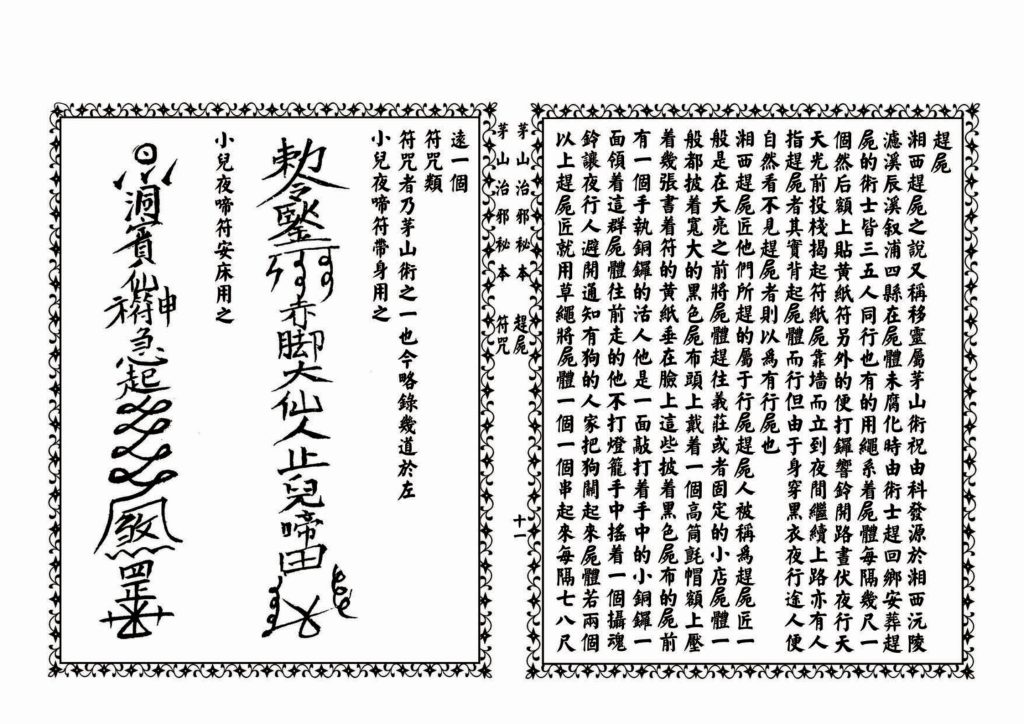 趕屍
湘西趕屍之說又稱移靈屬茅山術祝由科發源於湘西沅陵
濾溪辰溪叙浦四縣在屍體未腐化時由術士趕回鄉安葬趕
屍的術士皆三五人同行也有的用繩系着屍體每隔幾尺一
個然后額上貼黄紙符另外的便打鑼響鈴開路晝伏夜行天
天光前投棧揭起符紙屍靠墙而立到夜間繼續上路亦有人
指趕屍者其實背起屍體而行但由于身穿黑衣夜行途人便
自然看不見趕屍者則以爲有行屍也
湘西趕屍匠他們所趕的屬于行屍趕屍人被稱爲趕屍匠一
般是在天亮之前將屍體趕往義莊或者固定的小店屍體一
般都披着寬大的黑色屍布頭上戴着一個高筒氈帽額上壓
着幾張書着符的黄紙垂在臉上這些披着黑色屍布的屍前
有一個手執銅鑼的活人他是一面敲打着手中的小銅鑼一
面領着這群屍體往前走的他不打燈籠手中摇着一個攝魂
鈴讓夜行人避開通知有狗的人家把狗關起來屍體若兩個
以上趕屍匠就用草繩將屍體一個一個串起來每隔七八尺
茅山治邪秘本 趕屍
茅山治邪秘本 符咒
十一
遠一個
符咒類
符咒者乃茅山術之一也今略錄幾道於左
小兒夜啼符帶身用之
敕令
赤脚大仙人止兒啼
小兒夜啼符安床用之
洞賓仙
符神急起
煞
罡